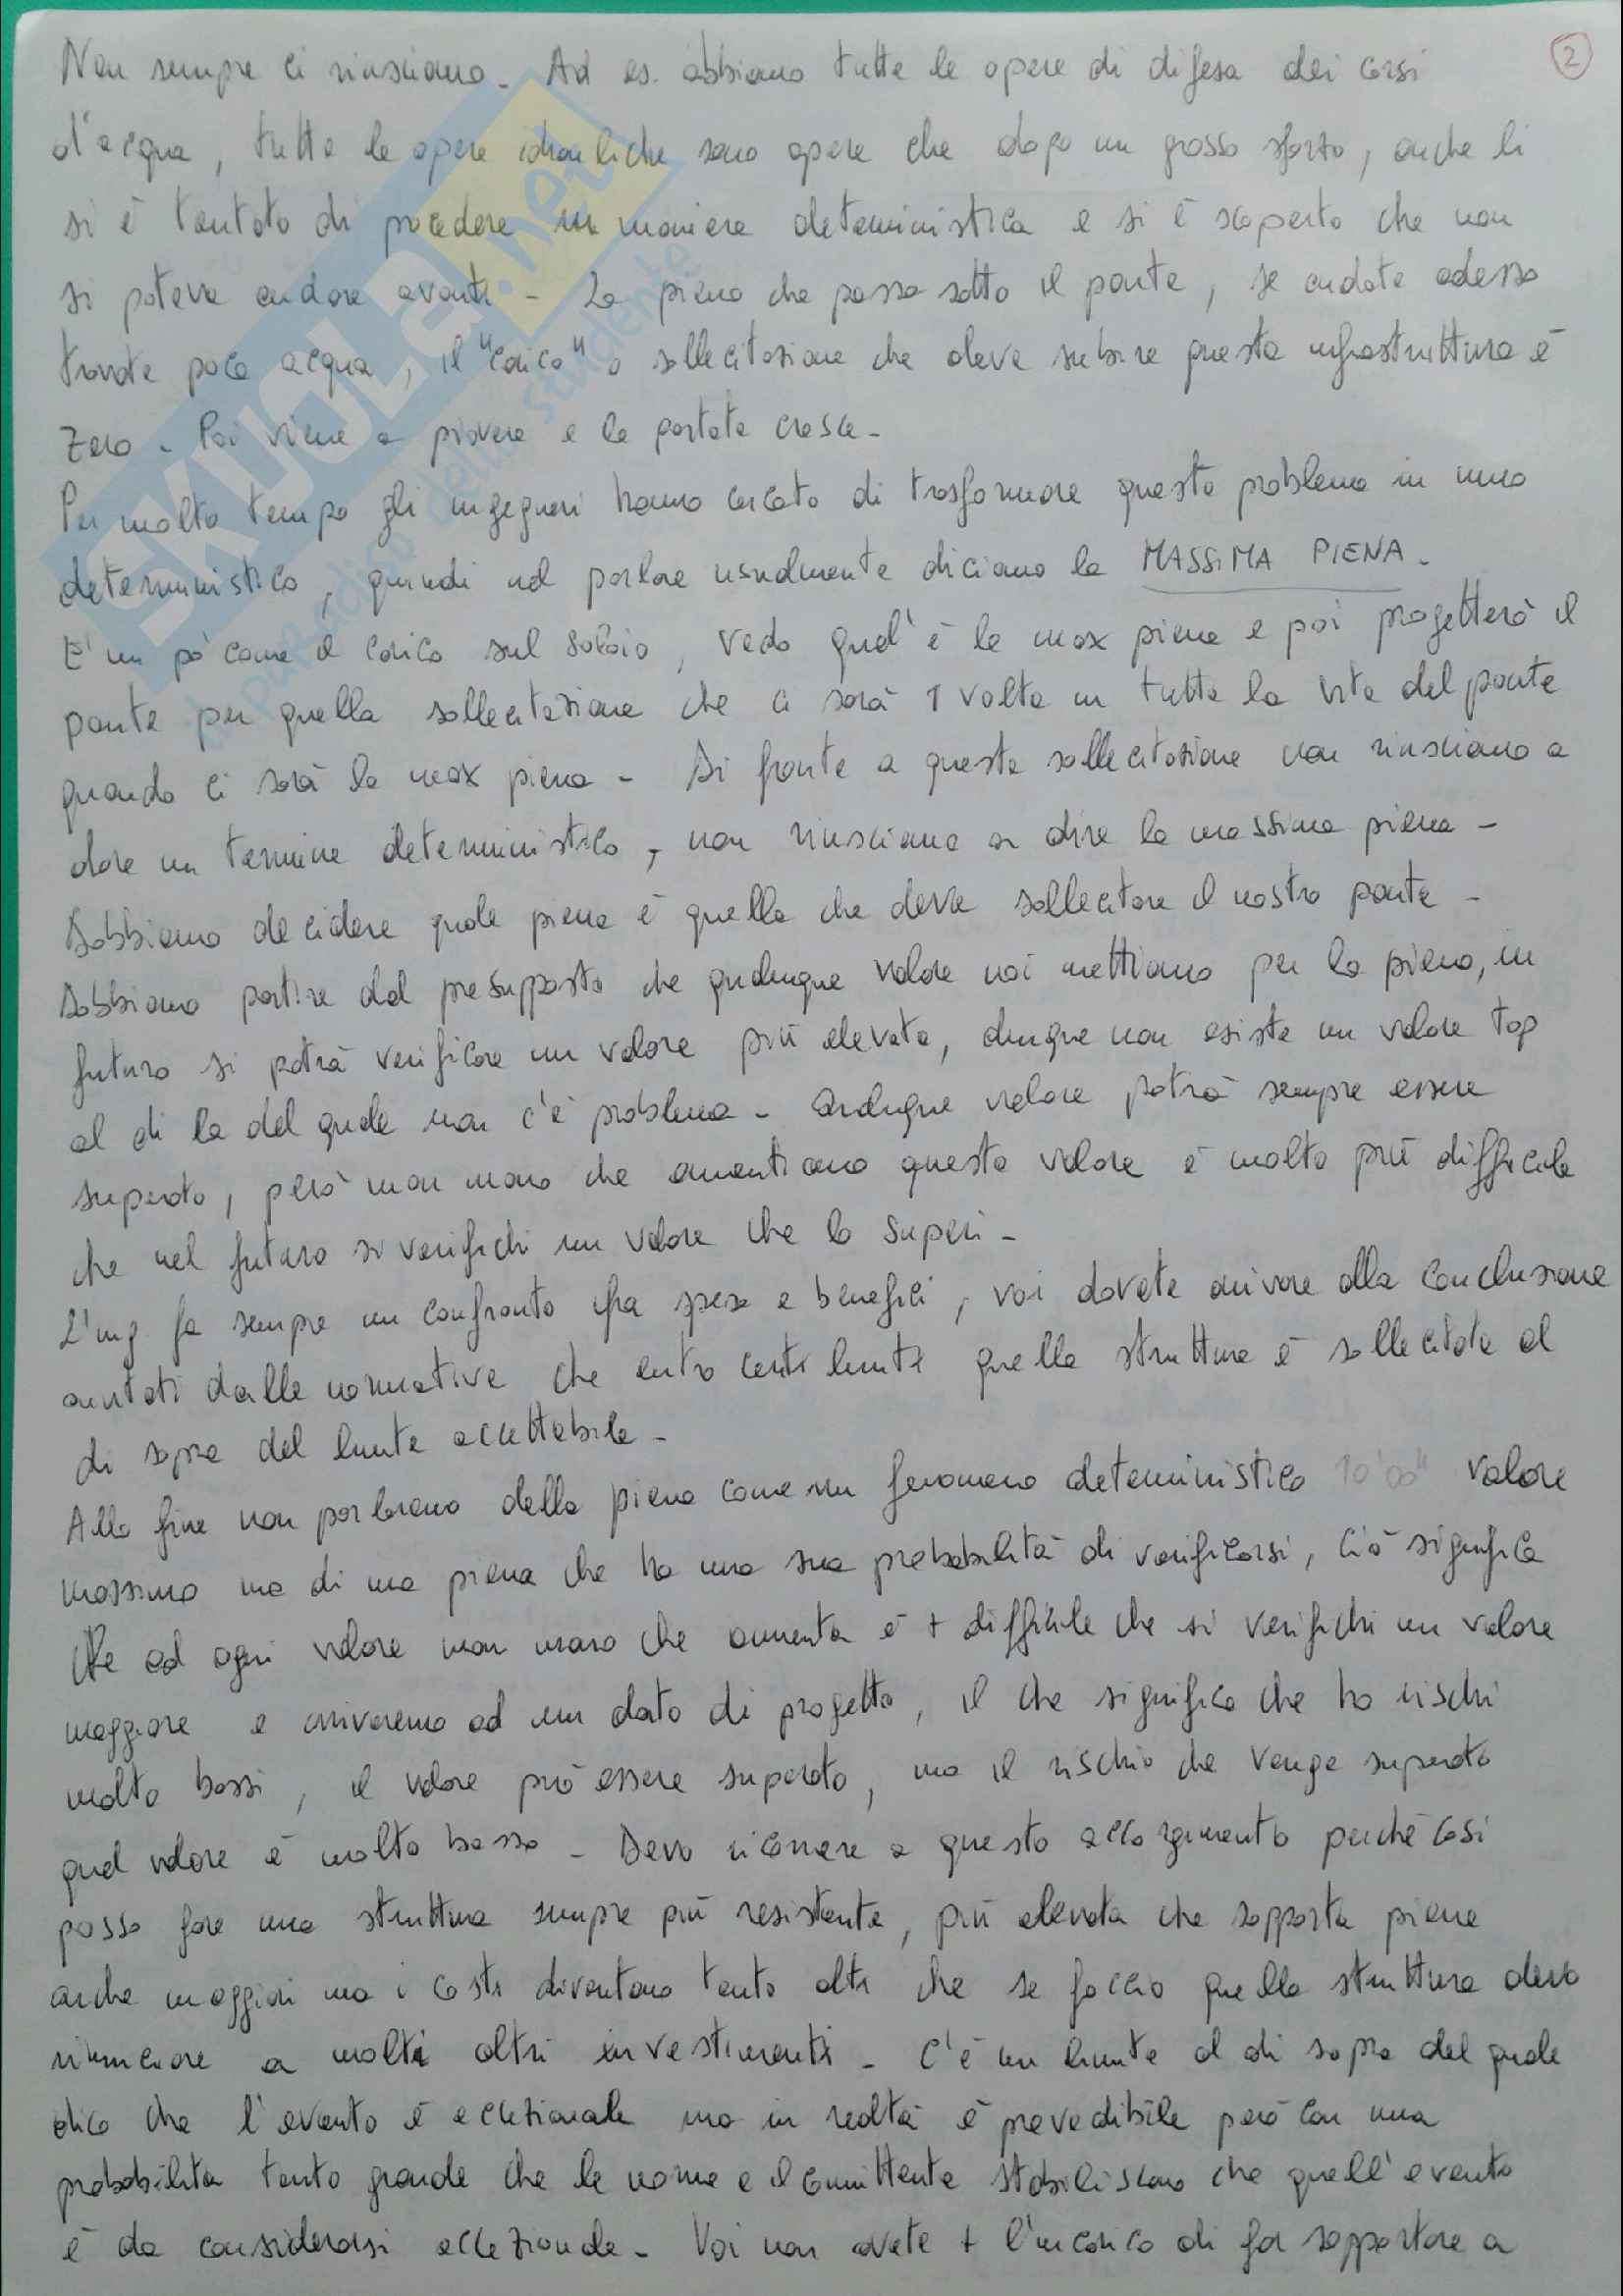 2
Non sempre ci riusciamo - Ad es. abbiamo tutte le opere di difesa dei corsi
d'acqua, tutte le opere idrauliche sono opere che dopo un grosso sforzo, anche lì
si è tentato di procedere in maniera deterministica e si è scoperto che non
si poteva andare avanti - La piena che passa sotto il ponte, se andate adesso
trovate poca acqua, il "carico" o sollecitazione che deve subire questa infrastruttura è
zero - Poi viene a piovere e la portata cresce -
Per molto tempo gli ingegneri hanno cercato di trasformare questo problema in uno
deterministico, quindi nel parlare usualmente diciamo la MASSIMA PIENA -
E' un pò come il carico sul solaio, vedo qual'è la max piena e poi progetterò il
ponte per quella sollecitazione che ci sarà 1 volta in tutta la vita del ponte
quando ci sarà la max piena - Di fronte a questa sollecitazione non riusciamo a
dare un termine deterministico, non riusciamo a dire la massima piena -
Dobbiamo decidere quale piena è quella che deve sollecitare il nostro ponte -
Dobbiamo partire dal presupposto che qualunque valore noi mettiamo per la piena, in
futuro si potrà verificare un valore più elevato, dunque non esiste un valore top
al di la del quale non c'è problema - Qualunque valore potrà sempre essere
superato, però man mano che aumentiamo questo valore è molto più difficile
che nel futuro si verifichi un valore che lo superi -
L'ing. fa sempre un confronto fra spese e benefici, voi dovete arrivare alla conclusione
aiutati dalle normative che entro certi limiti quella struttura è sollecitata al
di sopra del limite accettabile -
Alla fine non parleremo della piena come un fenomeno deterministico 10'00" valore
massimo ma di una piena che ha una sua probabilità di verificarsi, ciò significa
che ad ogni valore man mano che aumenta è + difficile che si verifichi un valore
maggiore e arriveremo ad un dato di progetto, il che significa che ho rischi
molto bassi, il valore può essere superato, ma il rischio che venga superato
quel valore è molto basso - Devo ricorrere a questo accorgimento perchè così
posso fare una struttura sempre più resistente, più elevata che sopporta piene
anche maggiori ma i costi diventano tanto alti che se faccio quella struttura devo
rinunciare a molti altri investimenti - C'è un limite al di sopra del quale
dico che l'evento è eccezionale ma in realtà è prevedibile però con una
probabilità tanto grande che le norme e il committente stabiliscono che quell'evento
è da considerarsi eccezionale - Voi non avete + l'incarico di far sopportare a
SKUOLA.net